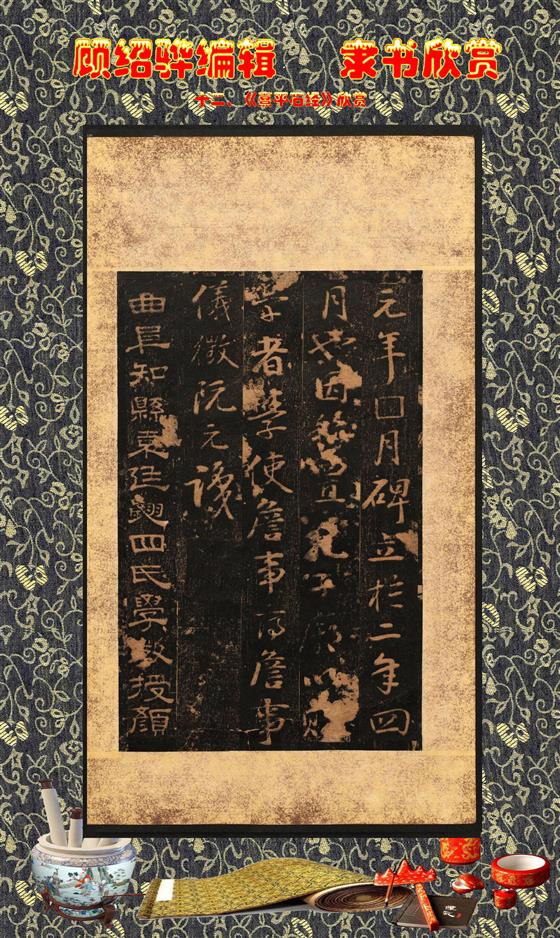 顾绍骅编辑 隶书欣赏
十二、《熹平石经》欣赏
元年□月碑立於二年四
月也因置孔子以貽
者學使詹事府詹事
儀徵阮元識
曲阜知縣袁廷翽四氏學教授顏